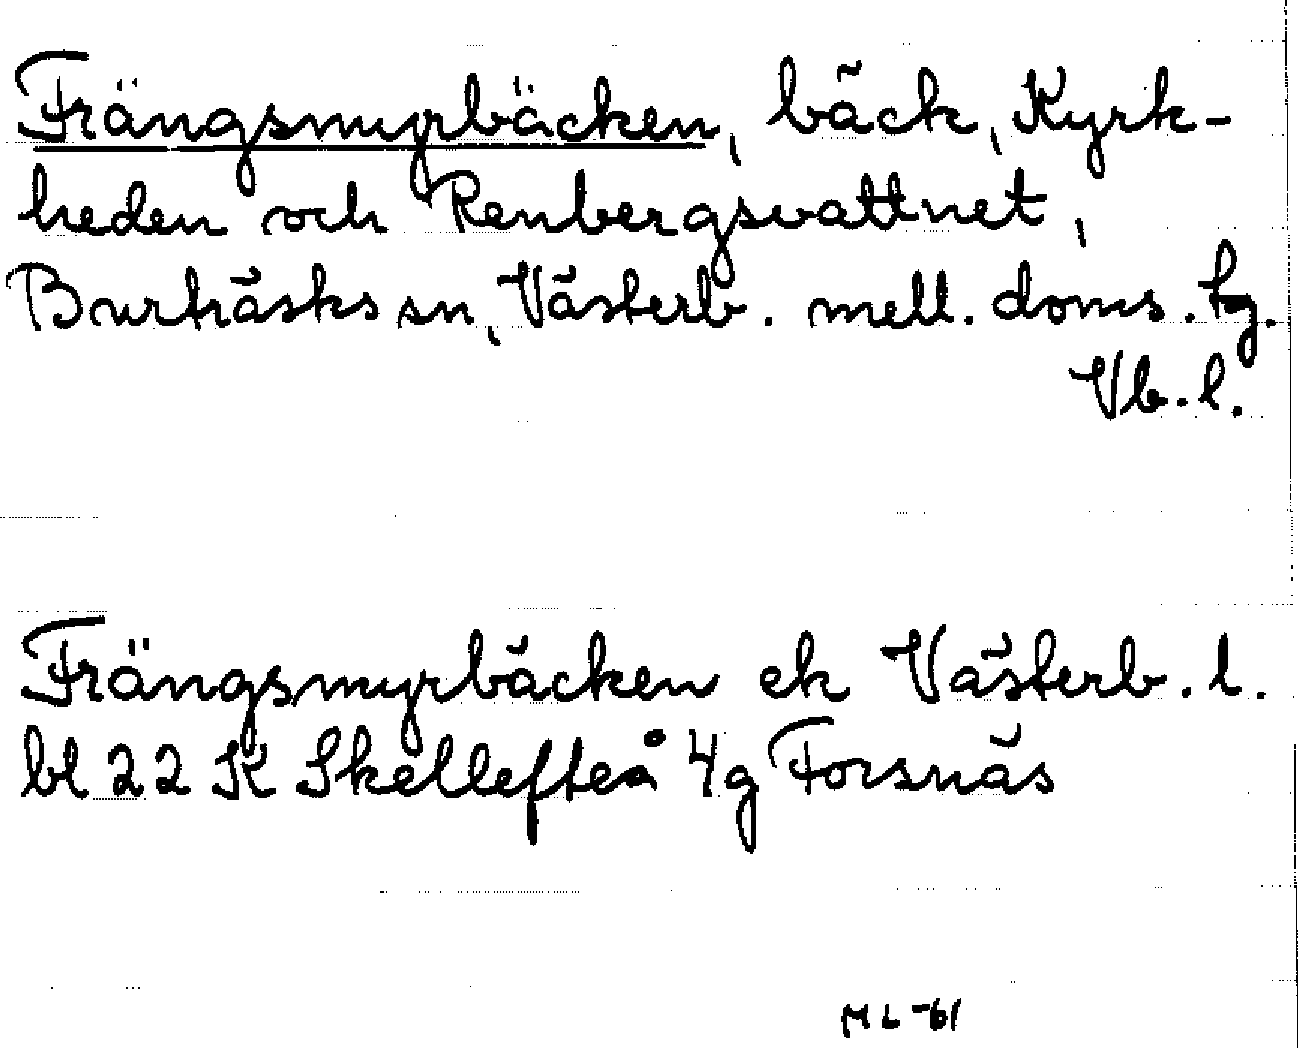 Frängsmyrbäcken, bäck, Kyrk-
heden och Renbergsvattnet,
Burträsks sn, Västerb. mell. doms. tg.
Vb. l.
Frängsmyrbäcken ek Västerb. l.
bl 22 K Skellefteå 4g Forsnäs
ML -61